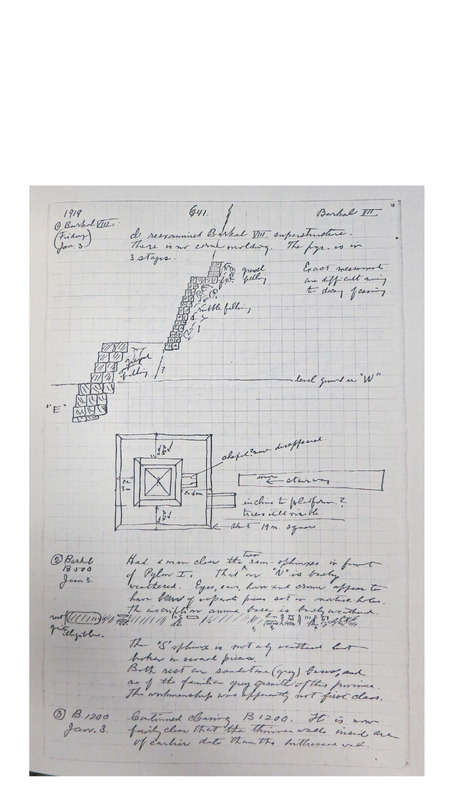 1919 641. Barkal VII
① Barkal VIII.
(Friday)
Jan. 3
I reexamined Barkal VIII superstructure.
There is no corner molding. The pyr. is in
3 steps.
gravel
filling
Exact measurements
are difficult owing
to decay of casing
rubble filling
gravel
filling
?
level ground on "W"
"E"
chapel now disappeared
stairway
incline to platform?
traces still visible
abt 19 m square
② Barkal
B 500
Jan 3.
Had a man clear the two ram-sphinxes in front
of Pylon I. That on "N" is badly
weathered. Eyes, ears, horns and crown appear to
have been of separate pieces set in mortised holes.
The inscription around base is badly weathered
not
quite
legible.
The "S" sphinx is not only weathered but
broken in several pieces.
Both rest on sandstone (grey) bases and
are of the familiar grey granite of this province.
The workmanship was apparently not first class.
③ B. 1200
Jan. 3.
Continued clearing B 1200. It is now
fairly clear that the thinner walls inside are
of earlier date than the buttressed wall.